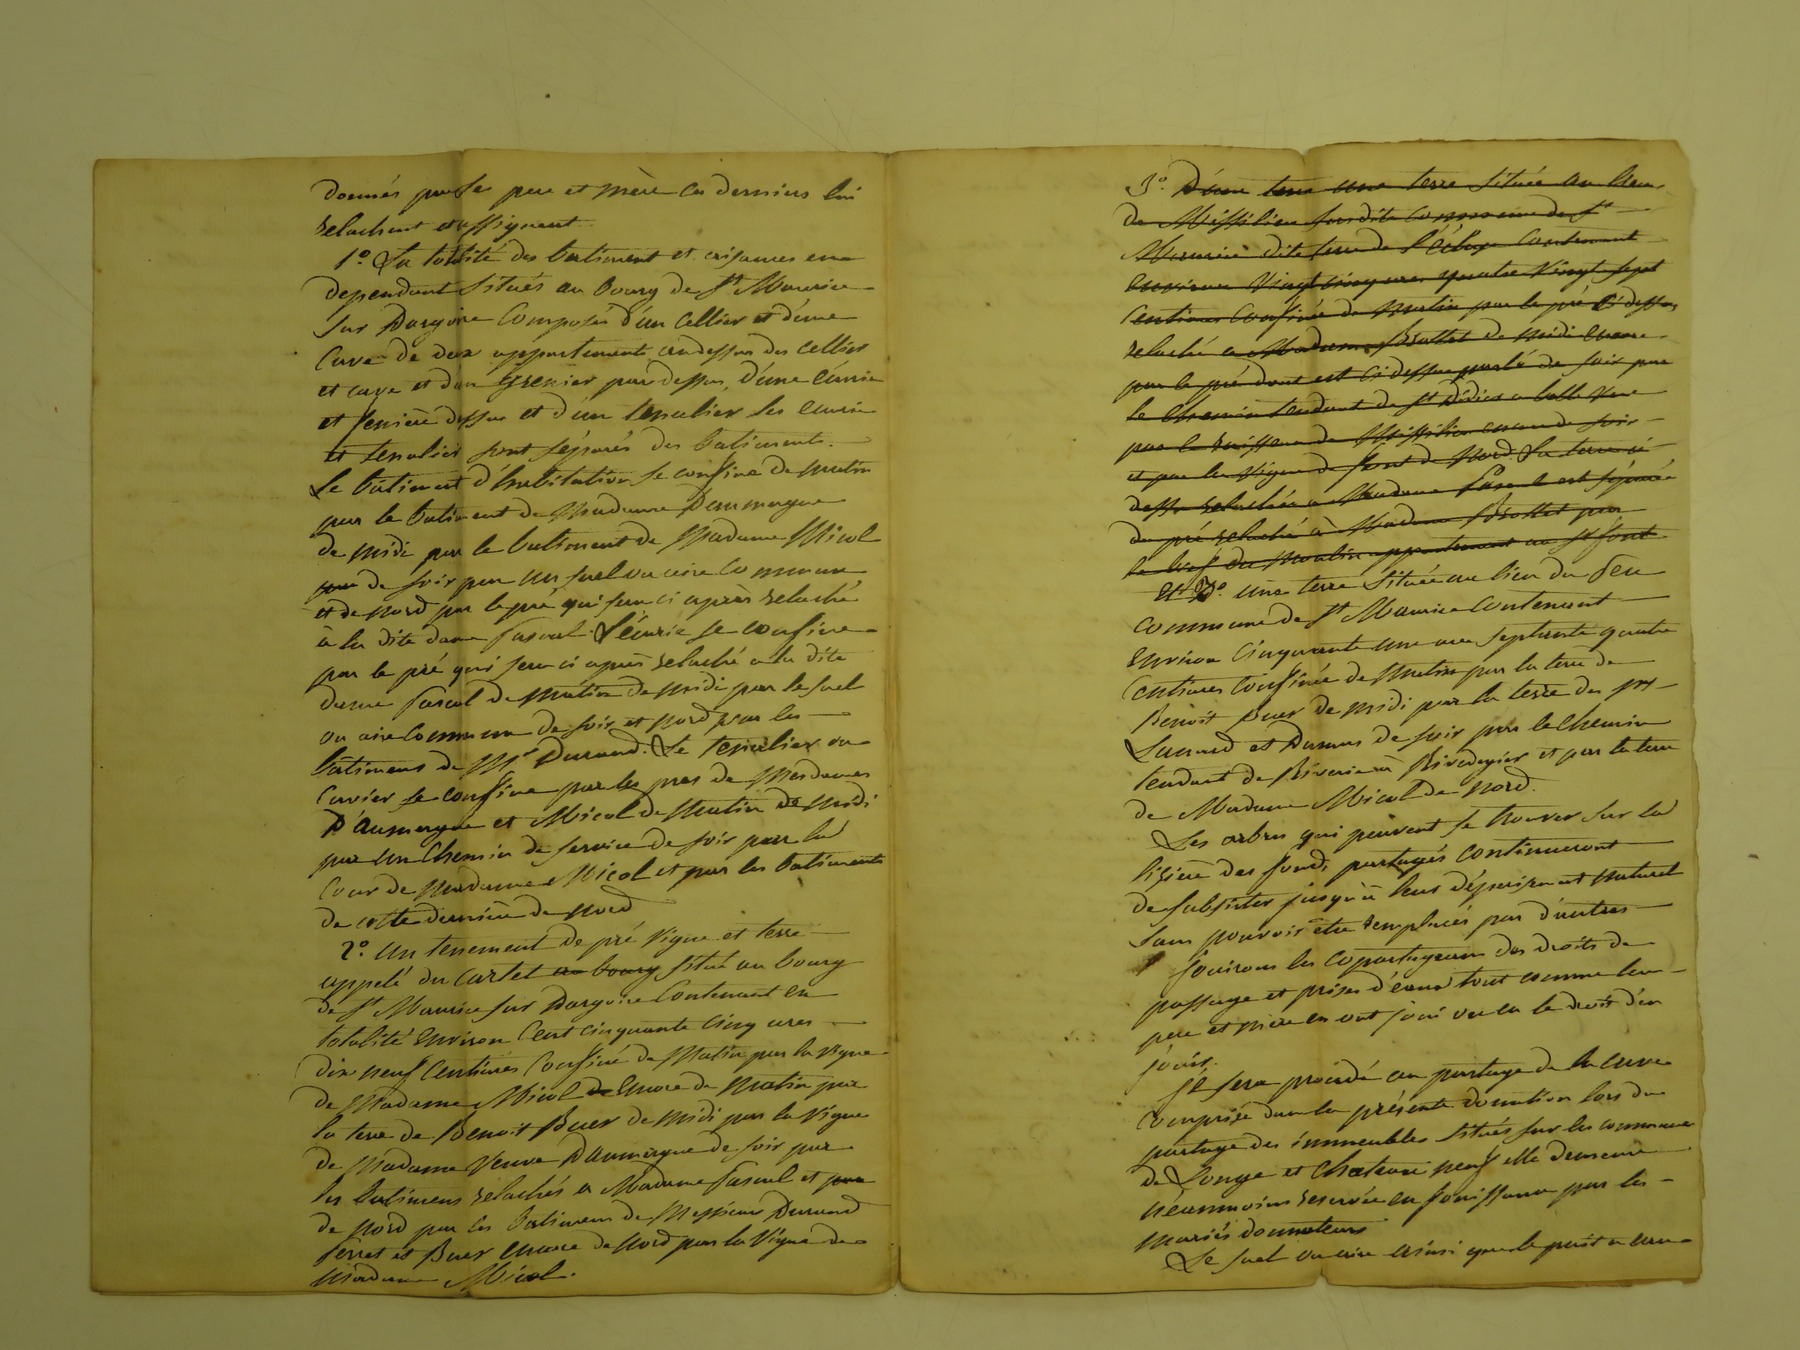 donnés par les pere et mère ces derniers lui
relachent et assignent
1º. La totalité des batiment et aisances en
dependant situés au bourg de St. Maurice
sur Dargoire Composés d'un Cellier et d'une
Cave de deux appartements audessus des cellier
et cave et d'un grenier par dessus, d'une écurie
et feniere dessus et d'un tenalier les écurie
et tenalier sont séparés des batiments.
Le batiment d'habitation se confine de matin
par le batiment de Madame Daumergue
de midi par le batiment de Madame Micol
par de soir par un suel ou aire Commune
et de nord par le pré qui sera ci après relaché
à la dite dame Pascal. L'écurie se confine
par le pré qui sera ci après relaché a la dite
dame Pascal de matin de midi par le suel
ou aire Commune de soir et nord par les
batimens de Mr Durand. Le tenalier ou
Cuvier se confine par les pres de Mesdames
D'aumergue et Micol de matin de midi
par un Chemin de service de soir par la
Cour de Madame Micol et par les batiments
de cette derniére de nord
2º. un tenement de pré vigne et terre
appelé du Cartet au bourg situé au bourg
de St Maurice sur Dargoire Contenant en
totalité environ Cent cinquante cinq ares
dix neuf Centiares Confiné de Matin par la vigne
de Madame Micol de encore de matin par
la terre de Benoit Buer de midi par la vigne
de Madame Veuve Daumergue de soir par
les batimens relachés a Madame Pascal et par
de nord par les batimens de Messieurs Durand
Ferret et Buer encore de nord par la Vigne de
Madame Micol.
3º. D'une terre une terre située au lieu
de Missilieu susdite Commune de St
Maurice dite terre de l'écluse Contenant
environ Vingt cinq ares quatre Vingt sept
Centiares Confinée de matin par le pré Ci dessus
relaché a Madame Brottet de midi encore
par le pré dont est Ci dessus parlé de soir par
le Chemin tendant de St Didier a belle Vue
par le ruisseau de Missilieu encore de soir
et par la Vigne de font de nord La terre ci
dessus relachée a Madame Pascal est séparée
du pré relaché à Madame Brottet par
le bief du Moulin appartenant au Sr font
Et 3º. une terre située au lieu du Feu
commune de St Maurice Contenant
environ Cinquante une are septante quatre
Centiares Confinée de matin par la terre de
Benoit Buer de midi par la terre des
Lacund et Dumas de soir par le Chemin
tendant de Riverie à Rivedegier et par la terre
de Madame Micol de nord.
Les arbres qui peuvent se trouver sur la
lisiere des fonds partagés continueront
de subsister jusqu'à leur dépérissement naturel
sans pouvoir etre remplacés par d'autres
Jouirons les copartageans des droits de
passage et prises d'eau tout comme leur
pere et mère en ont joui ou eu le droit d'en
jouir.
Il sera procédé au partage de la cuve
Comprise dans la présente donation lors du
partage des immeubles situés sur les communes
de Longe et Chateau neuf elle demeure
néanmoins reservée en jouissance par les
mariés donnateurs
Le suel ou aire ainsi que le puit a eau